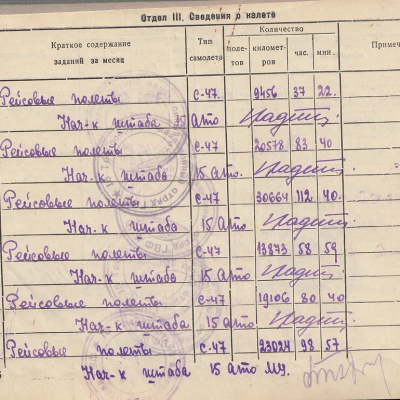 Отдел III. Сведения о налете
Краткое содержание заданий за месяц
Тип самолета
Количество
поле-тов
километ-ров
час.
мин.
Примеч
Рейсовые полеты С-47. 9456 37 22.
Нач-к штаба 15 Ато
Рейсовые полеты С-47. 20578 83 40
Нач-к штаба 15 Ато.
Рейсовые полеты С-47. 30664 112 40.
Нач-к штаба 15 Ато
Рейсовые полеты С-47 13873 58 59
Нач-к штаба 15 Ато
Рейсовые полеты С-47 19106 80 40
Нач-к штаба 15 Ато.
Рейсовые полеты С-47 23024 98 57
Нач-к штаба 15 Ато МУ.